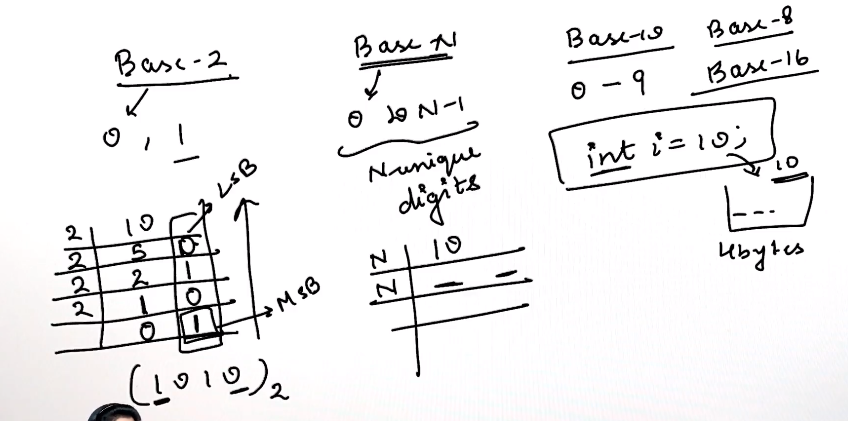 Base-2
0, 1
LSB
2 10
2 5 0
2 2 1
2 1 0
0 1
MSB
(1010)₂
Base N
0 to N-1
N-unique
digits
N 10
N
Base-10
0 - 9
Base-8
Base-16
int i = 10;
10
---
4bytes